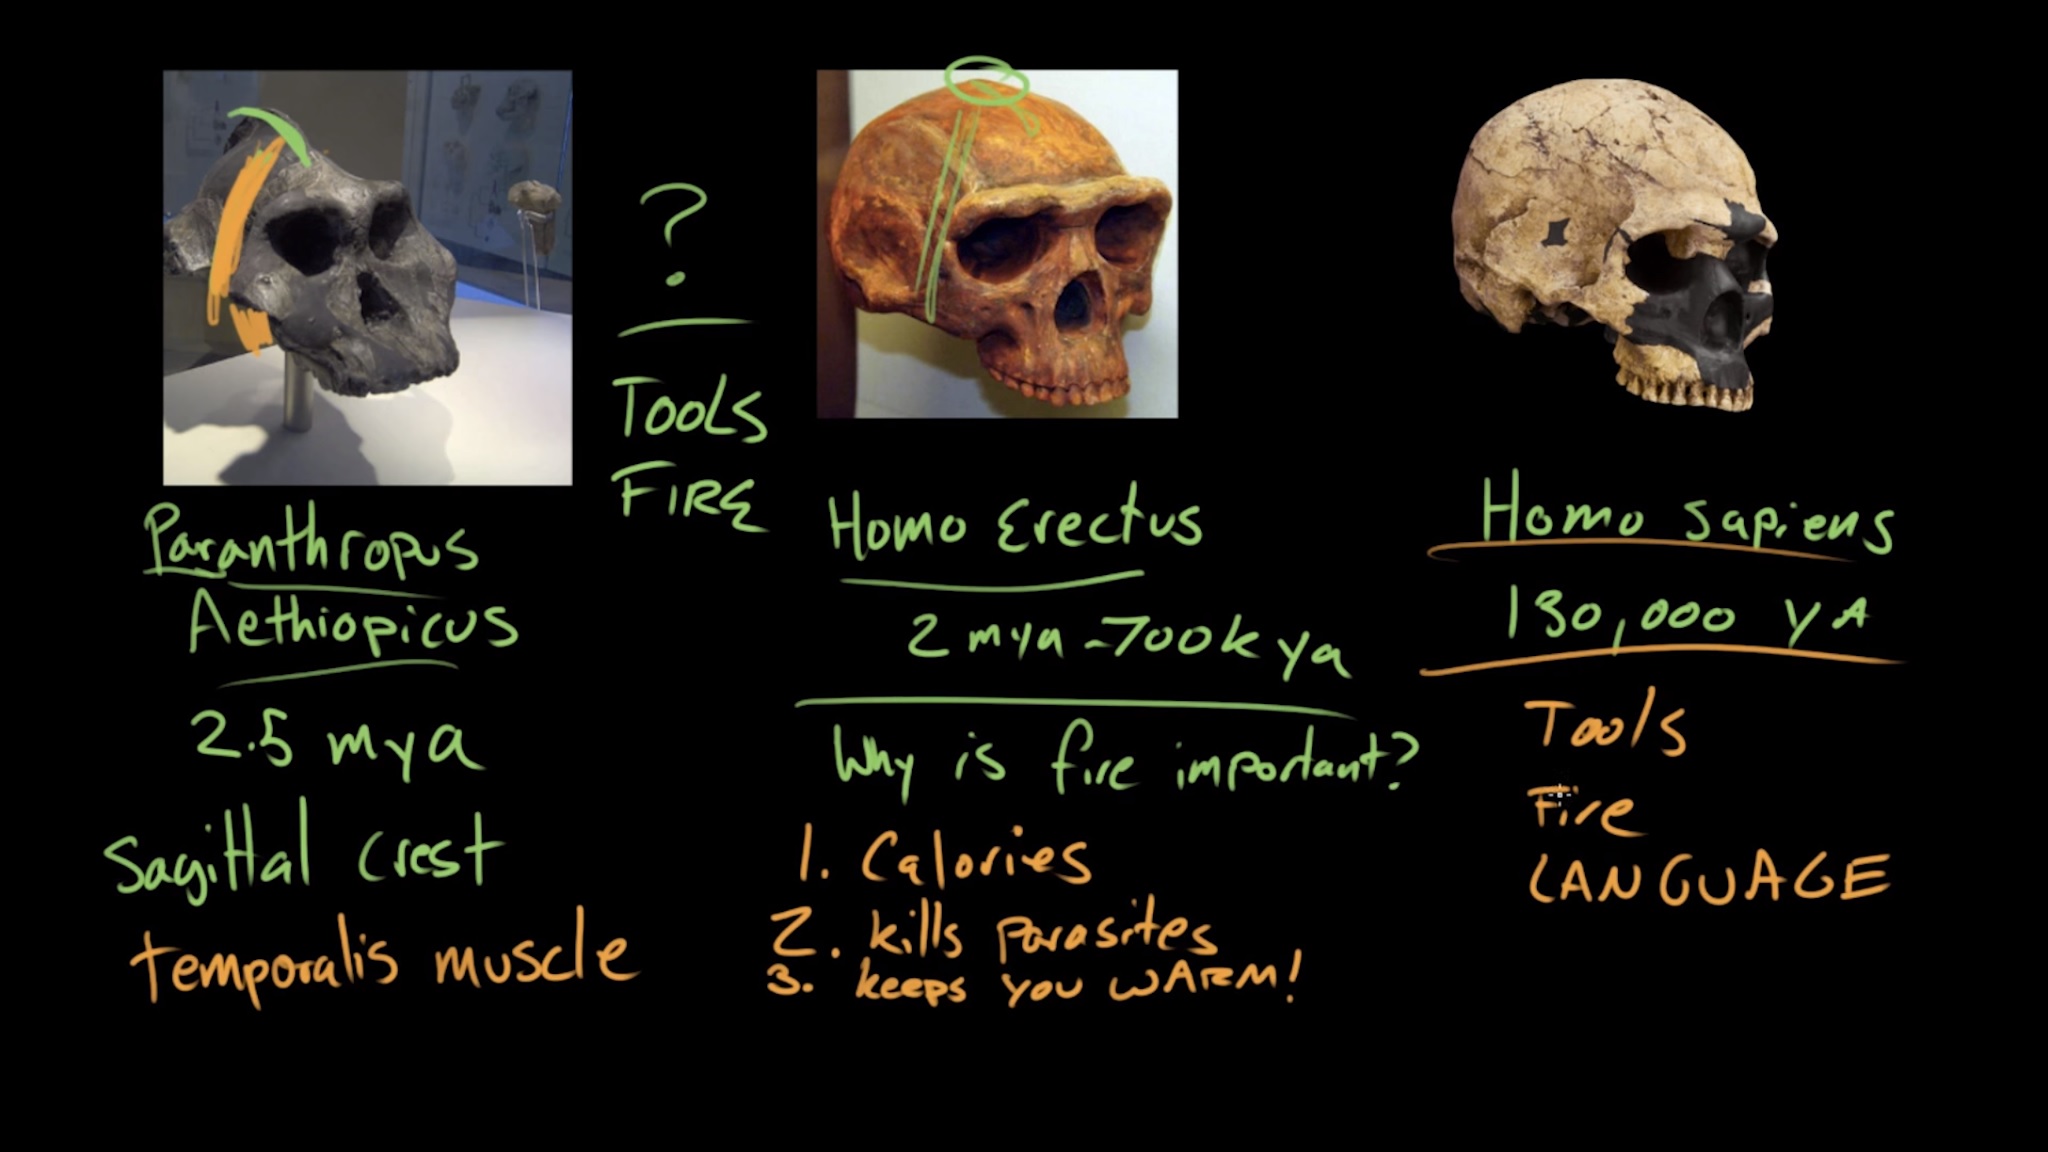 Paranthropus
Aethiopicus
2.5 mya
Sagittal crest
temporalis muscle
?
TOOLS
FIRE
Homo Erectus
2 mya - 700k ya
Why is fire important?
1. Calories
2. kills parasites
3. keeps you WARM!
Homo sapiens
130,000 YA
Tools
Fire
LANGUAGE